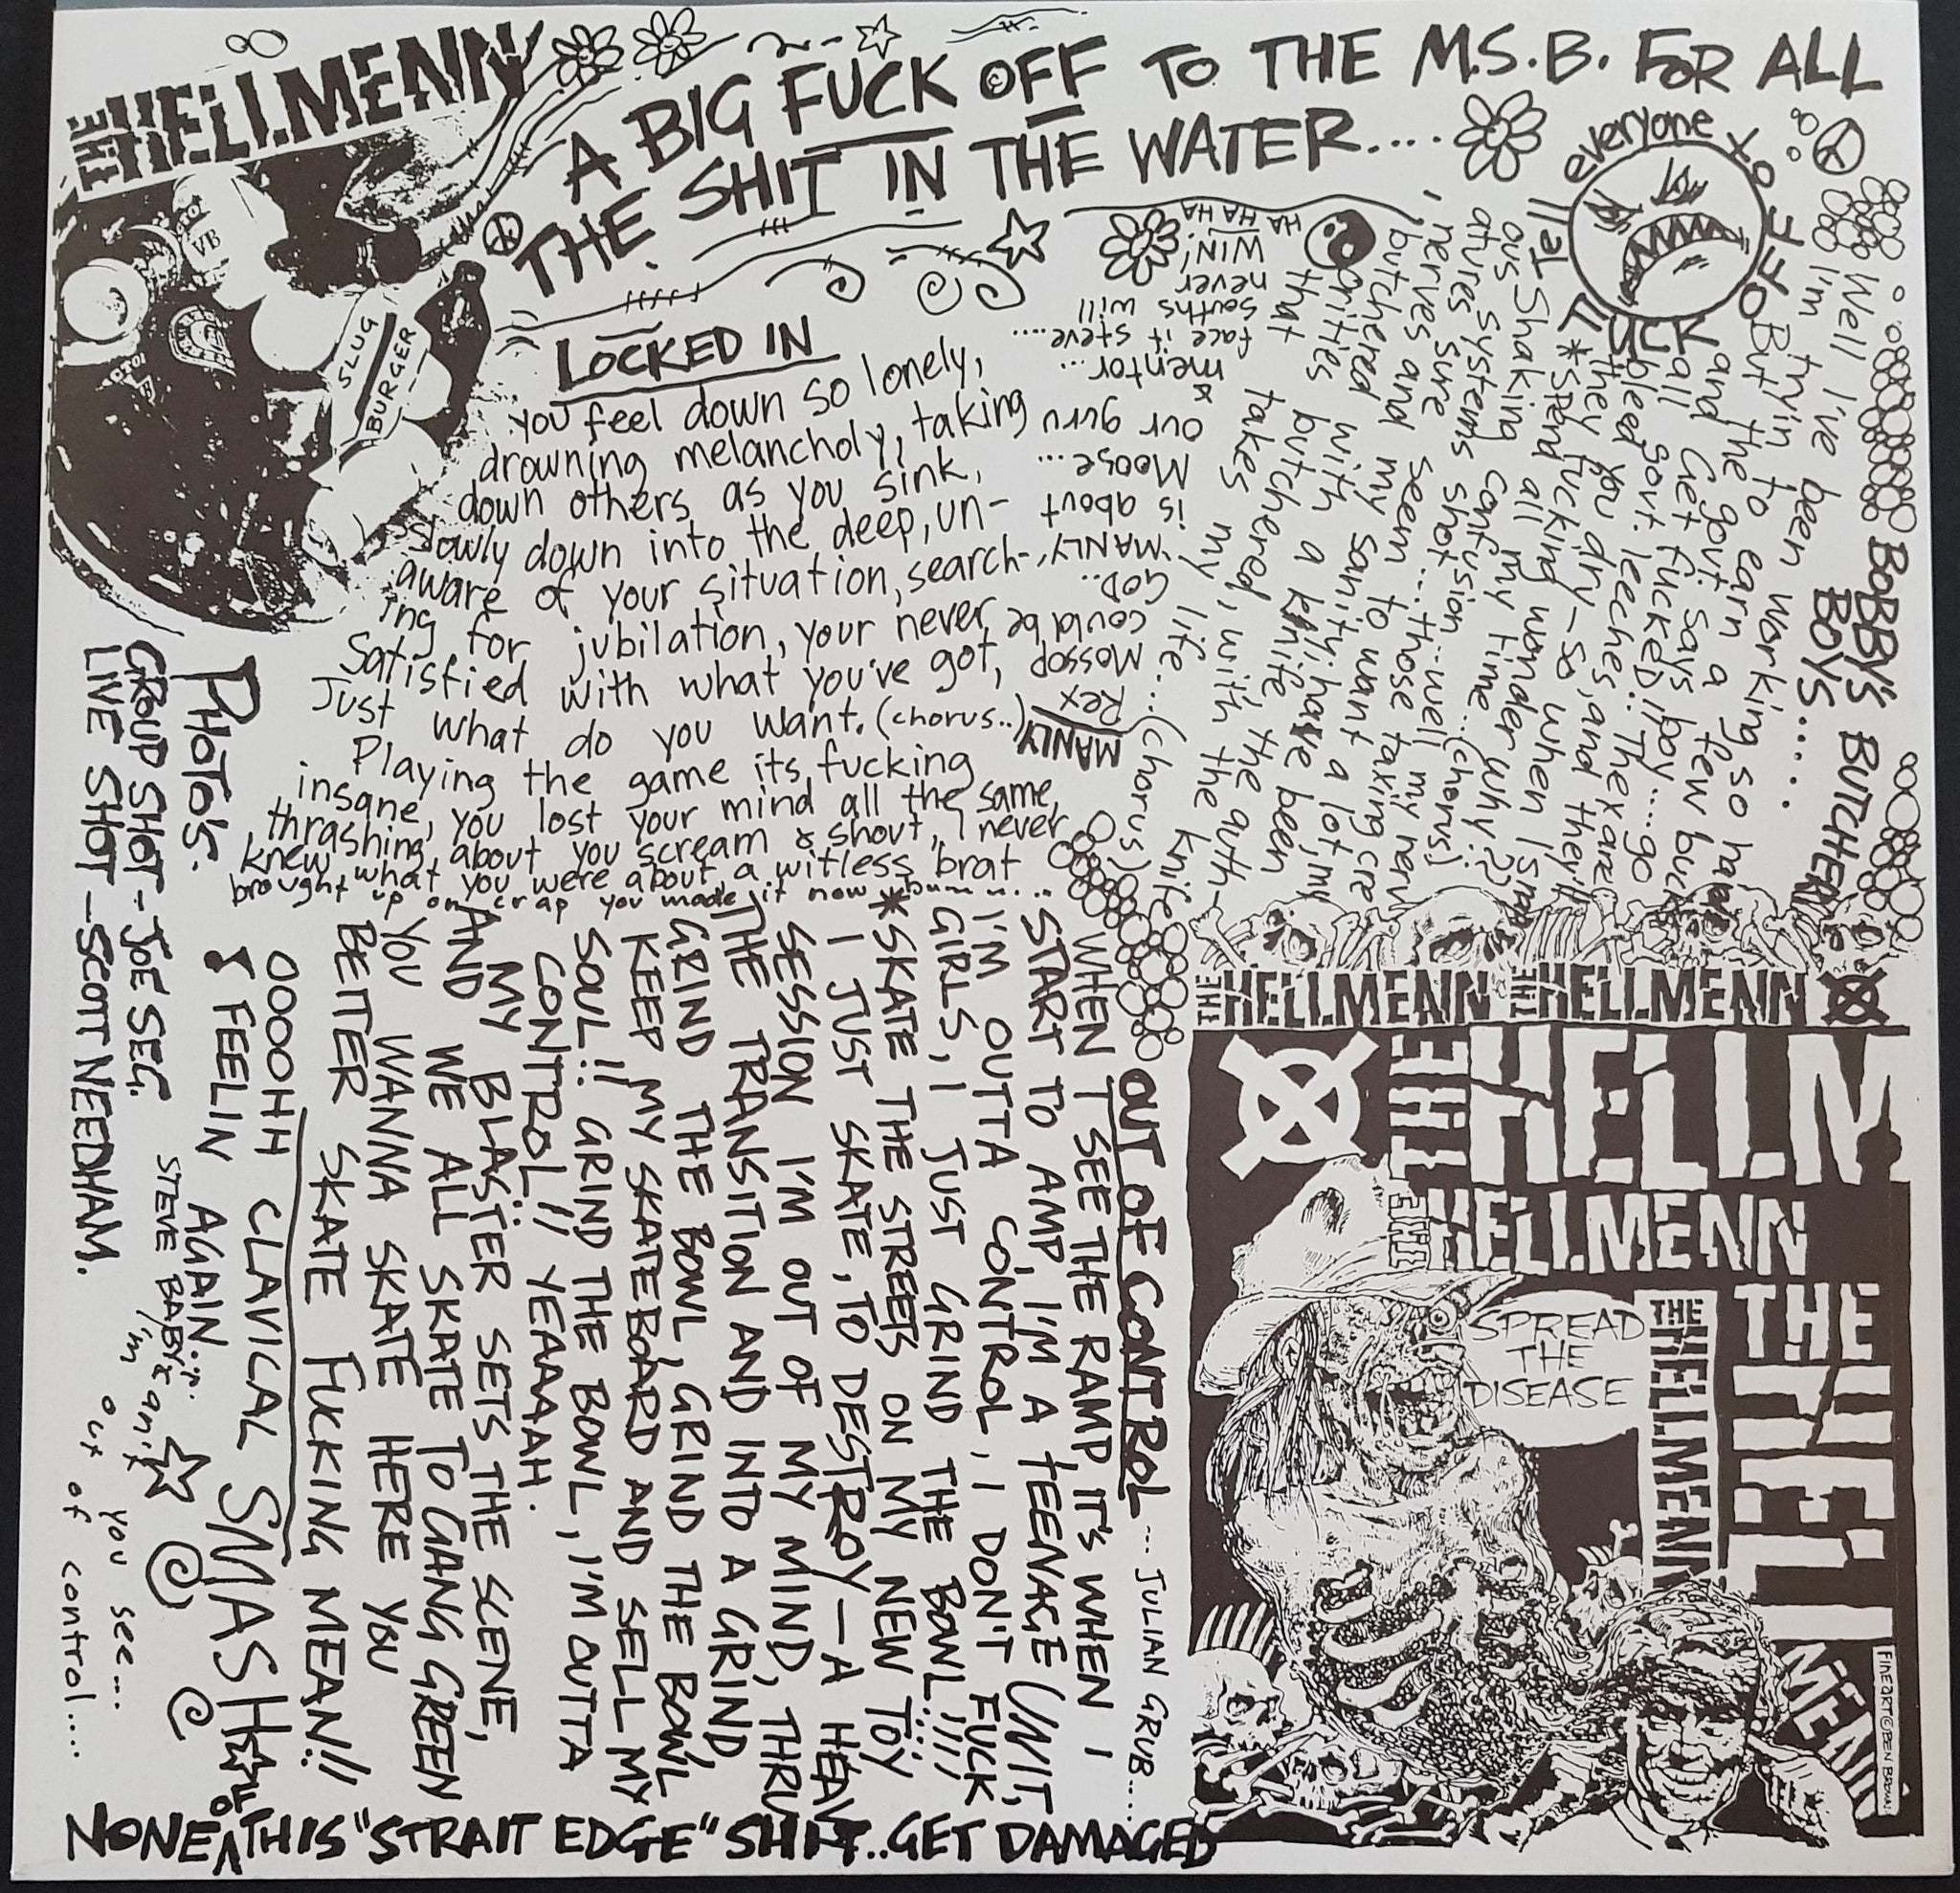 THE HELLMENN
A BIG FUCK OFF TO THE M.S.B. FOR ALL
THE SHIT IN THE WATER....
VB
SLUG
BURGER
LOCKED IN
you feel down so lonely,
drowning melancholy, taking
down others as you sink,
slowly down into the deep, un-
aware of your situation, search-
ing for jubilation, your never
Satisfied with what you've got,
Just what do you want. (chorus..)
Playing the game its fucking
insane, you lost your mind all the same,
thrashing about you scream & shout, I never
knew what you were about a witless brat
brought up on crap you made it now bum...
MANLY
Rex
Mossop
coulda be
GOD..
'MANLY'
is about
Moose...
our guru
& mentor...
face it steve....
souths will
never
WIN!
HA HA HA HA
Tell everyone to FUCK OFF
BOBBY'S BUTCHER
BOYS.....
Well I've been working so har
I'm tryin to earn a few buck
But the govt. says boy.... go
and Get fucked!! They are
all govt. leeches, and they'll
bleed you dry - so when I
they fucking wonder why??
*Spend all my time... (chorus)
Shaking confusion... well my nerv
ous systems shot... those
atures sure seem to want a lot, my
nerves and my sanity have been
butchered with a knife, the auth-
orities butchered, with the knife
that takes my life... (chorus)
THE HELLMENN THE HELLMENN
THE HELLM
THE HELLMENN
THE HELL
THE HELLMENN
MENN
SPREAD
THE
DISEASE
FINE ART © BEN BROWN!
OUT OF CONTROL... JULIAN GRUB....
WHEN I SEE THE RAMP IT'S WHEN I
START TO AMP, I'M A TEENAGE UNIT,
I'M OUTTA CONTROL, I DON'T FUCK
GIRLS, I JUST GRIND THE BOWL!!!
*SKATE THE STREETS ON MY NEW TOY
I JUST SKATE, TO DESTROY - A HEAV
SESSION I'M OUT OF MY MIND, THRU
THE TRANSITION AND INTO A GRIND
GRIND THE BOWL, GRIND THE BOWL
KEEP MY SKATEBOARD AND SELL MY
SOUL!! GRIND THE BOWL, I'M OUTTA
CONTROL!! YEAAAAH.
MY BLASTER SETS THE SCENE,
AND WE ALL SKATE TO GANG GREEN
YOU WANNA SKATE HERE YOU
BETTER SKATE FUCKING MEAN!!
OOOOHH CLAVICAL SMASH
FEELIN AGAIN...
STEVE BABY &
I'm out of control....
you see...
PHOTO'S.
GROUP SHOT - JOE SEG.
LIVE SHOT - SCOTT NEEDHAM.
NONE OF THIS "STRAIT EDGE" SHIT.. GET DAMAGED